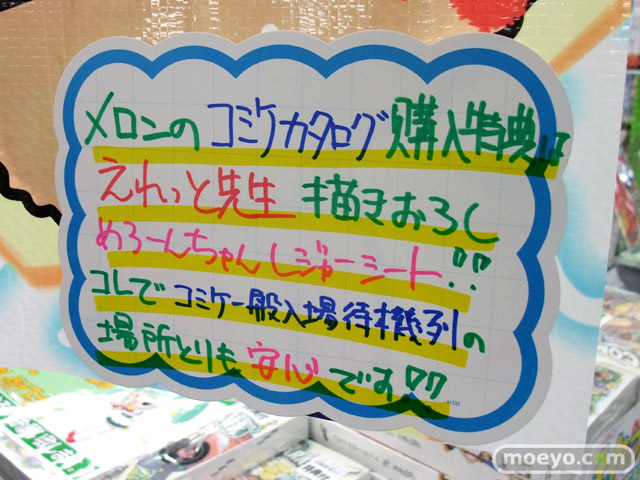 メロンのコミケカタログ購入特典は
えれっと先生 描きおろし
めろーんちゃんレジャーシート!!
コレでコミケ一般入場待機列の
場所とりも安心です!!
moeyo.com